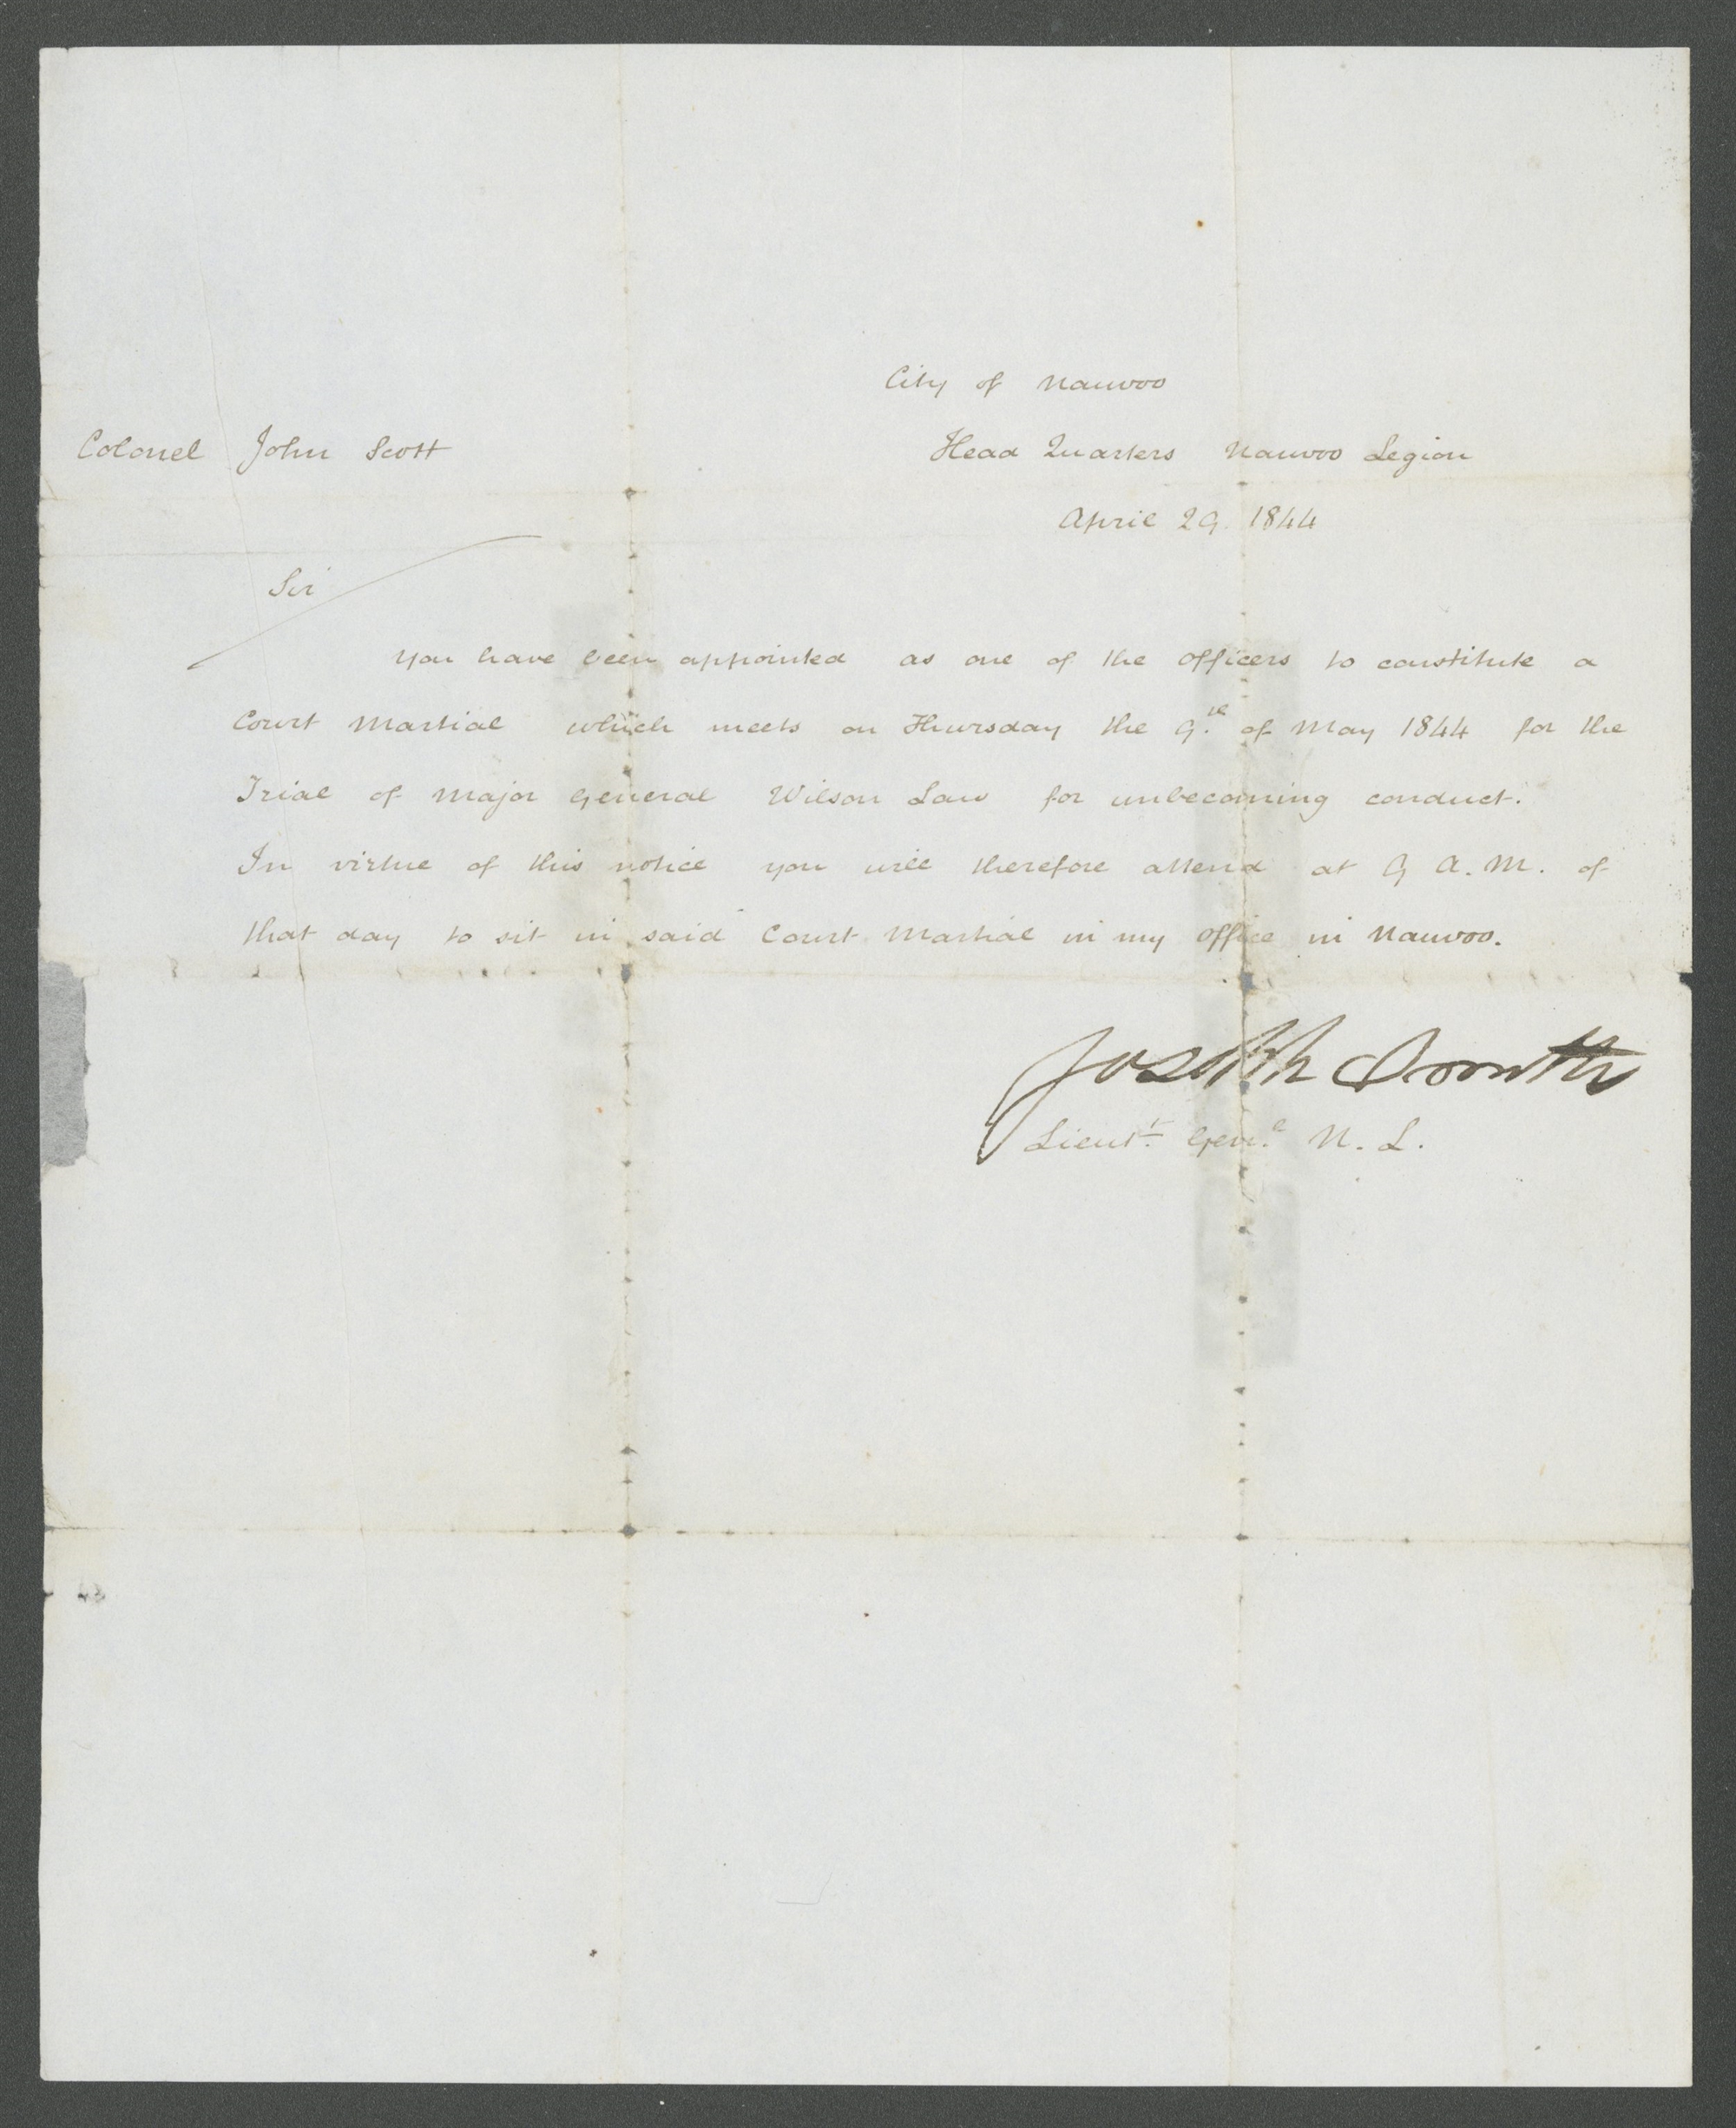 City of Nauvoo
Colonel John Scott Head Quarters Nauvoo Legion
April 29. 1844
Sir
You have been appointed as one of the officers to constitute a
Court Martial which meets on Thursday the 9.th of May 1844 for the
Trial of Major General Wilson Law for unbecoming conduct.
In virtue of this notice you will therefore attend at 9 A.M. of
that day to sit in said Court Martial in my office in Nauvoo.
Joseph Smith
Lieut.t Gen.l N. L.